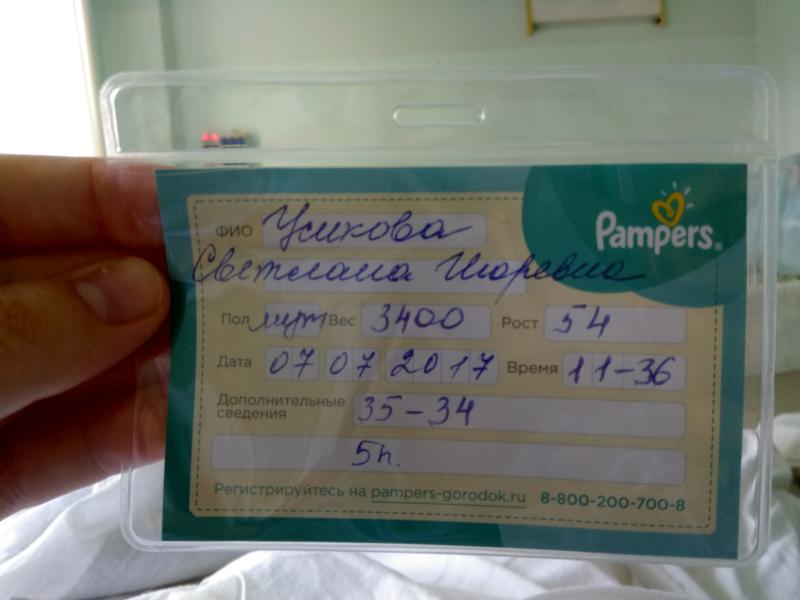 Pampers®
ФИО Усикова
Светлана Игоревна
Пол муж Вес 3400 Рост 54
Дата 07 07 2017 Время 11-36
Дополнительные сведения 35-34
5п.
Регистрируйтесь на pampers-gorodok.ru 8-800-200-700-8